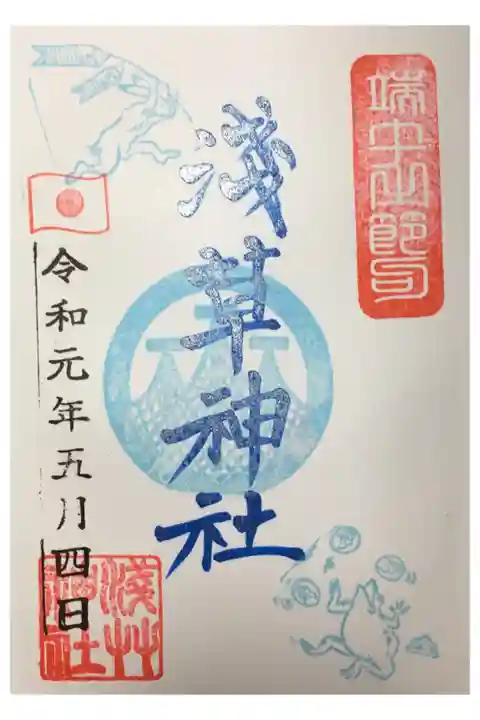 端午之節句
淺草神社
令和元年五月四日
淺草神社